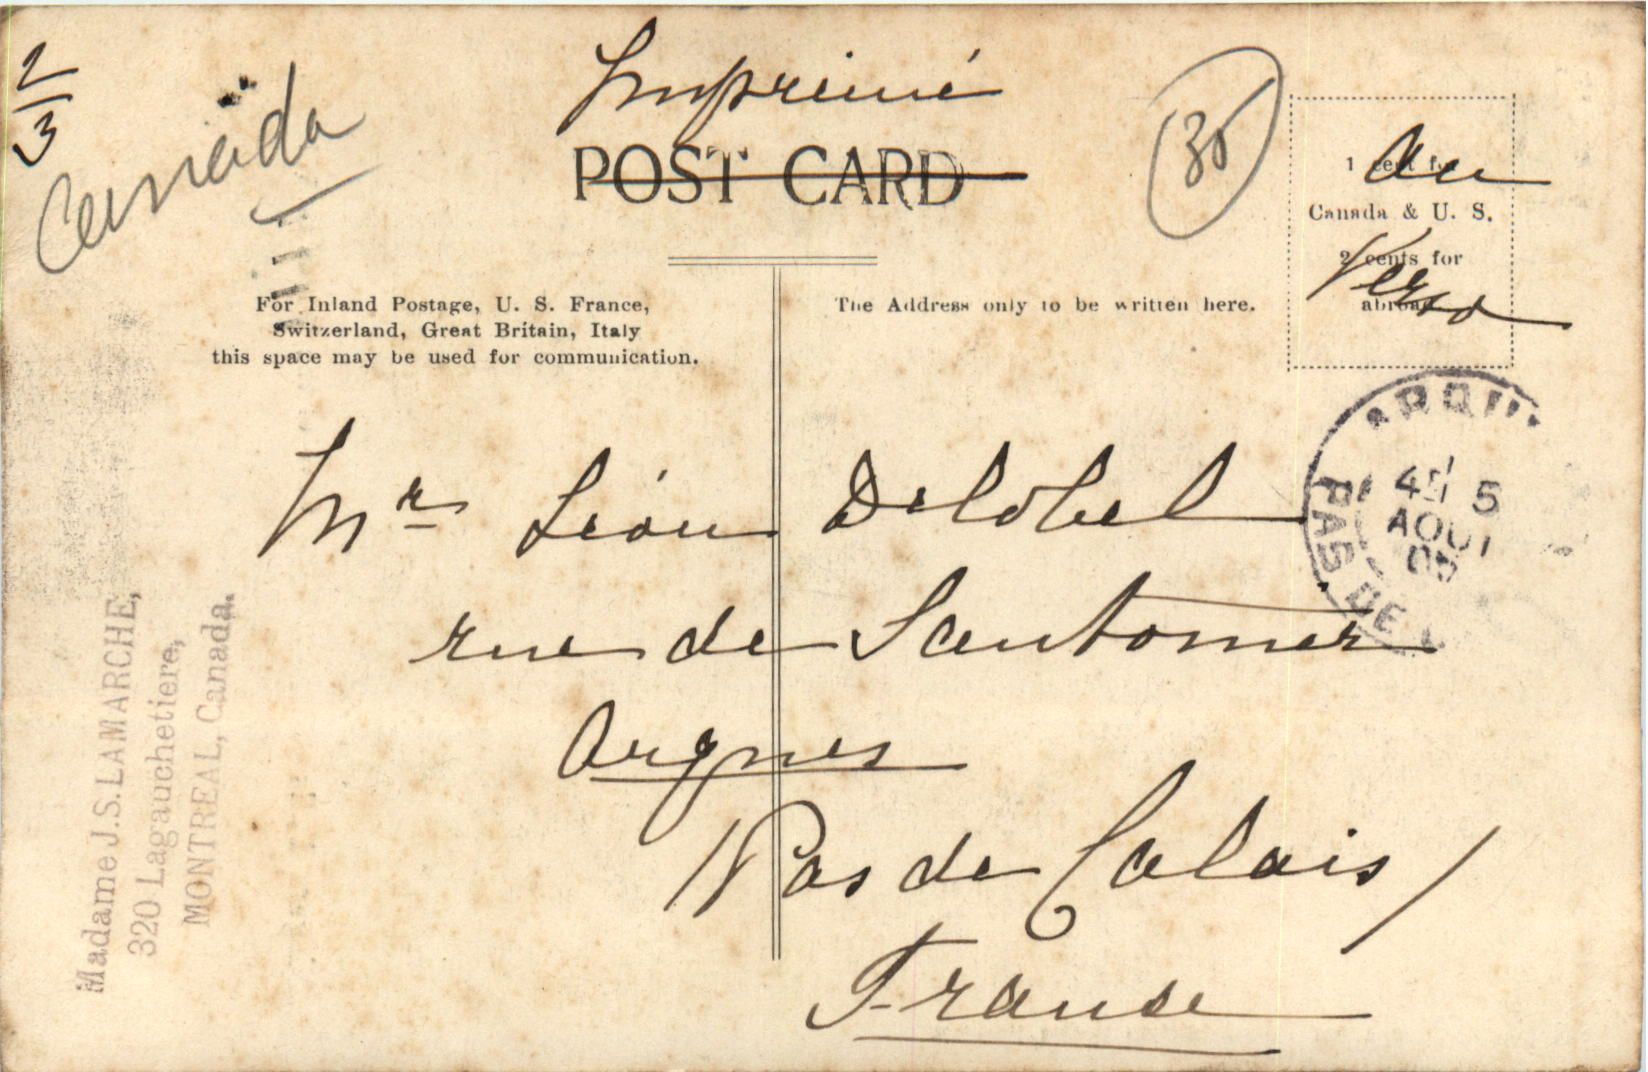 2/3
Canada
Imprimé
POST CARD
35
Au
Verso
1 cent for
Canada & U. S.
2 cents for
abroad
For Inland Postage, U. S. France,
Switzerland, Great Britain, Italy
this space may be used for communication.
The Address only to be written here.
Mr Léon Delobel
rue de Santomer
Arques
Pas de Calais /
France
5
AOUT
05
PAS DE
Madame J.S. LAMARCHE,
320 Lagauchetiere,
MONTREAL, Canada.